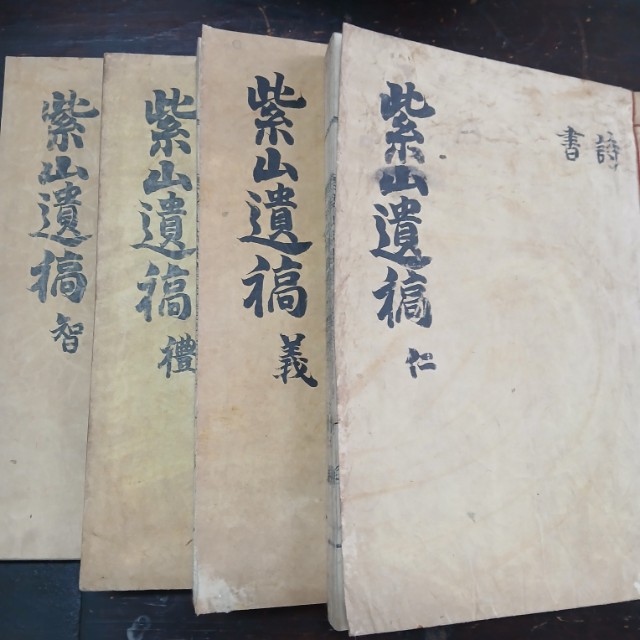 詩
書
紫山遺稿 仁
紫山遺稿 義
紫山遺稿 禮
紫山遺稿 智